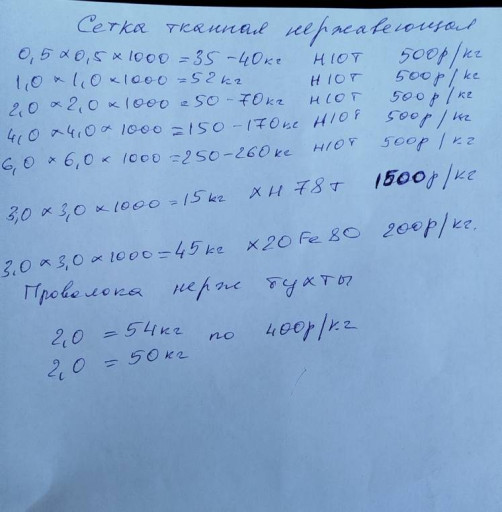 Сетка тканная нержавеющая
0,5 × 0,5 × 1000 = 35 - 40 кг Н10Т 500р/кг
1,0 × 1,0 × 1000 = 52 кг Н10Т 500р/кг
2,0 × 2,0 × 1000 = 50 - 70 кг Н10Т 500р/кг
4,0 × 4,0 × 1000 = 150 - 170 кг Н10Т 500р/кг
6,0 × 6,0 × 1000 = 250 - 260 кг Н10Т 500р/кг
3,0 × 3,0 × 1000 = 15 кг ХН 78Т 1500р/кг
3,0 × 3,0 × 1000 = 45 кг Х20 Fe 80 200р/кг.
Проволока нерж бухты
2,0 = 54 кг по 400р/кг
2,0 = 50 кг